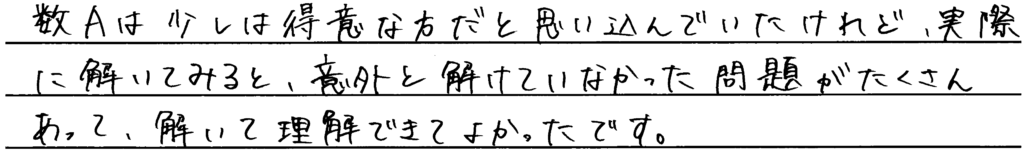 数Aは少しは得意な方だと思い込んでいたけれど、実際
に解いてみると、意外と解けていなかった問題がたくさん
あって、解いて理解できてよかったです。